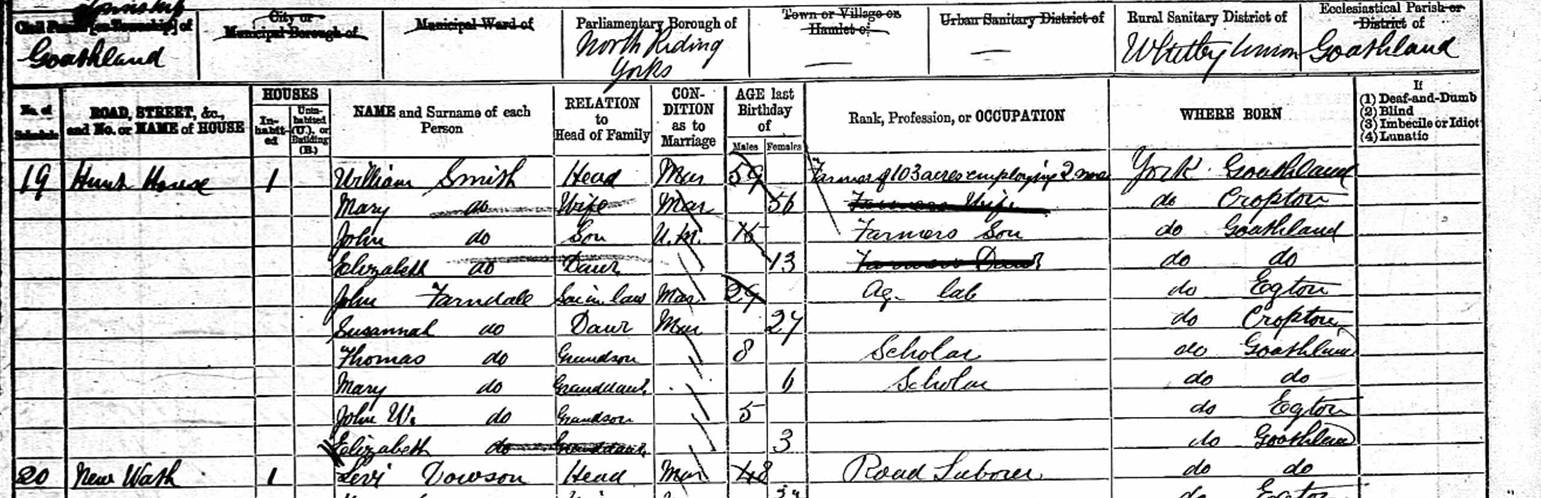 Township
Civil Parish [or Township] of
City or
Municipal Borough of
Municipal Ward of
Parliamentary Borough of
Town or Village or
Hamlet of
Urban Sanitary District of
Rural Sanitary District of
Ecclesiastical Parish or
District of
Goathland
North Riding
Yorks
Whitby Union
Goathland
No. of
Schedule
ROAD, STREET, &c.,
and No. or NAME of HOUSE
HOUSES
In-
habit-
ed
Unin-
habited
(U.), or
Building
(B.)
NAME and Surname of each
Person
RELATION
to
Head of Family
CON-
DITION
as to
Marriage
AGE last
Birthday
of
Males Females
Rank, Profession, or OCCUPATION
WHERE BORN
If
(1) Deaf-and-Dumb
(2) Blind
(3) Imbecile or Idiot
(4) Lunatic
19 Hunt House 1 William Smith Head Mar 59 Farmer of 103 acres employing 2 men York Goathland
Mary do Wife Mar 56 Farmers Wife do Cropton
John do Son U.M. Farmers Son do Goathland
Elizabeth do Daur 13 Farmers Daur do do
John Farndale Son in law Mar 29 Ag. lab do Egton
Susannah do Daur Mar 27 do Cropton
Thomas do Grandson 8 Scholar do Goathland
Mary do Granddaur. 6 Scholar do do
John W. do Grandson 5 do Egton
Elizabeth do Granddaur. 3 do Goathland
20 New Wath 1 Levi Dowson Head Mar 48 Road Laborer do do
do Egton